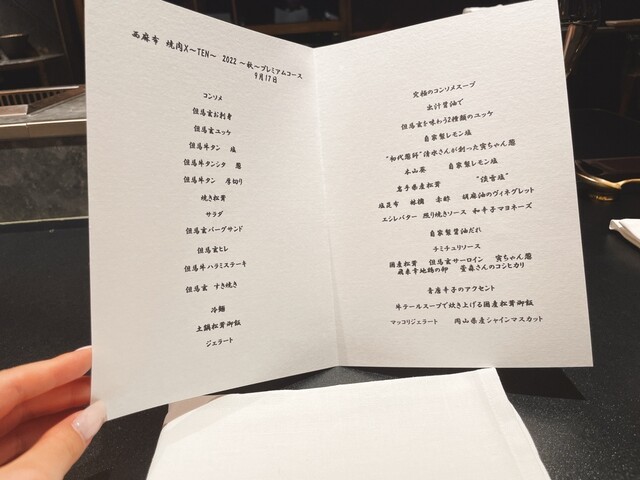 西麻布 焼肉X〜TEN〜 2022 〜秋〜プレミアムコース
9月17日
コンソメ
但馬玄お刺身
但馬玄ユッケ
但馬牛タン 塩
但馬牛タンシタ 葱
但馬牛タン 厚切り
焼き松茸
サラダ
但馬玄バーグサンド
但馬玄ヒレ
但馬牛ハラミステーキ
但馬玄 すき焼き
冷麺
土鍋松茸御飯
ジェラート
究極のコンソメスープ
出汁醤油で
但馬玄を味わう2種類のユッケ
自家製レモン塩
"初代葱師"清水さんが創った寅ちゃん葱
本山葵 自家製レモン塩
岩手県産松茸 "淡雪塩"
塩昆布 林檎 赤酢 胡麻油のヴィネグレット
エシレバター 照り焼きソース 和辛子マヨネーズ
自家製醤油だれ
チミチュリソース
国産松茸 但馬玄サーロイン 寅ちゃん葱
龍泉寺地鶏の卵 萱森さんのコシヒカリ
青唐辛子のアクセント
牛テールスープで炊き上げる国産松茸御飯
マッコリジェラート 岡山県産シャインマスカット